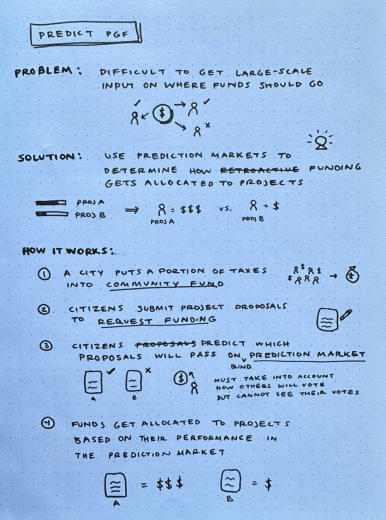 PREDICT PGF
PROBLEM: DIFFICULT TO GET LARGE-SCALE
INPUT ON WHERE FUNDS SHOULD GO
$
SOLUTION: USE PREDICTION MARKETS TO
DETERMINE HOW RETROACTIVE FUNDING
GETS ALLOCATED TO PROJECTS
PROJ A
PROJ B
= $$$ VS. = $
PROJ A PROJ B
HOW IT WORKS:
1 A CITY PUTS A PORTION OF TAXES
INTO COMMUNITY FUND
$ $ $ $
2 CITIZENS SUBMIT PROJECT PROPOSALS
TO REQUEST FUNDING
3 CITIZENS PROPOSALS PREDICT WHICH
PROPOSALS WILL PASS ON PREDICTION MARKET
BLIND
A B $
MUST TAKE INTO ACCOUNT
HOW OTHERS WILL VOTE
BUT CANNOT SEE THEIR VOTES
4 FUNDS GET ALLOCATED TO PROJECTS
BASED ON THEIR PERFORMANCE IN
THE PREDICTION MARKET
= $$$ = $
A B